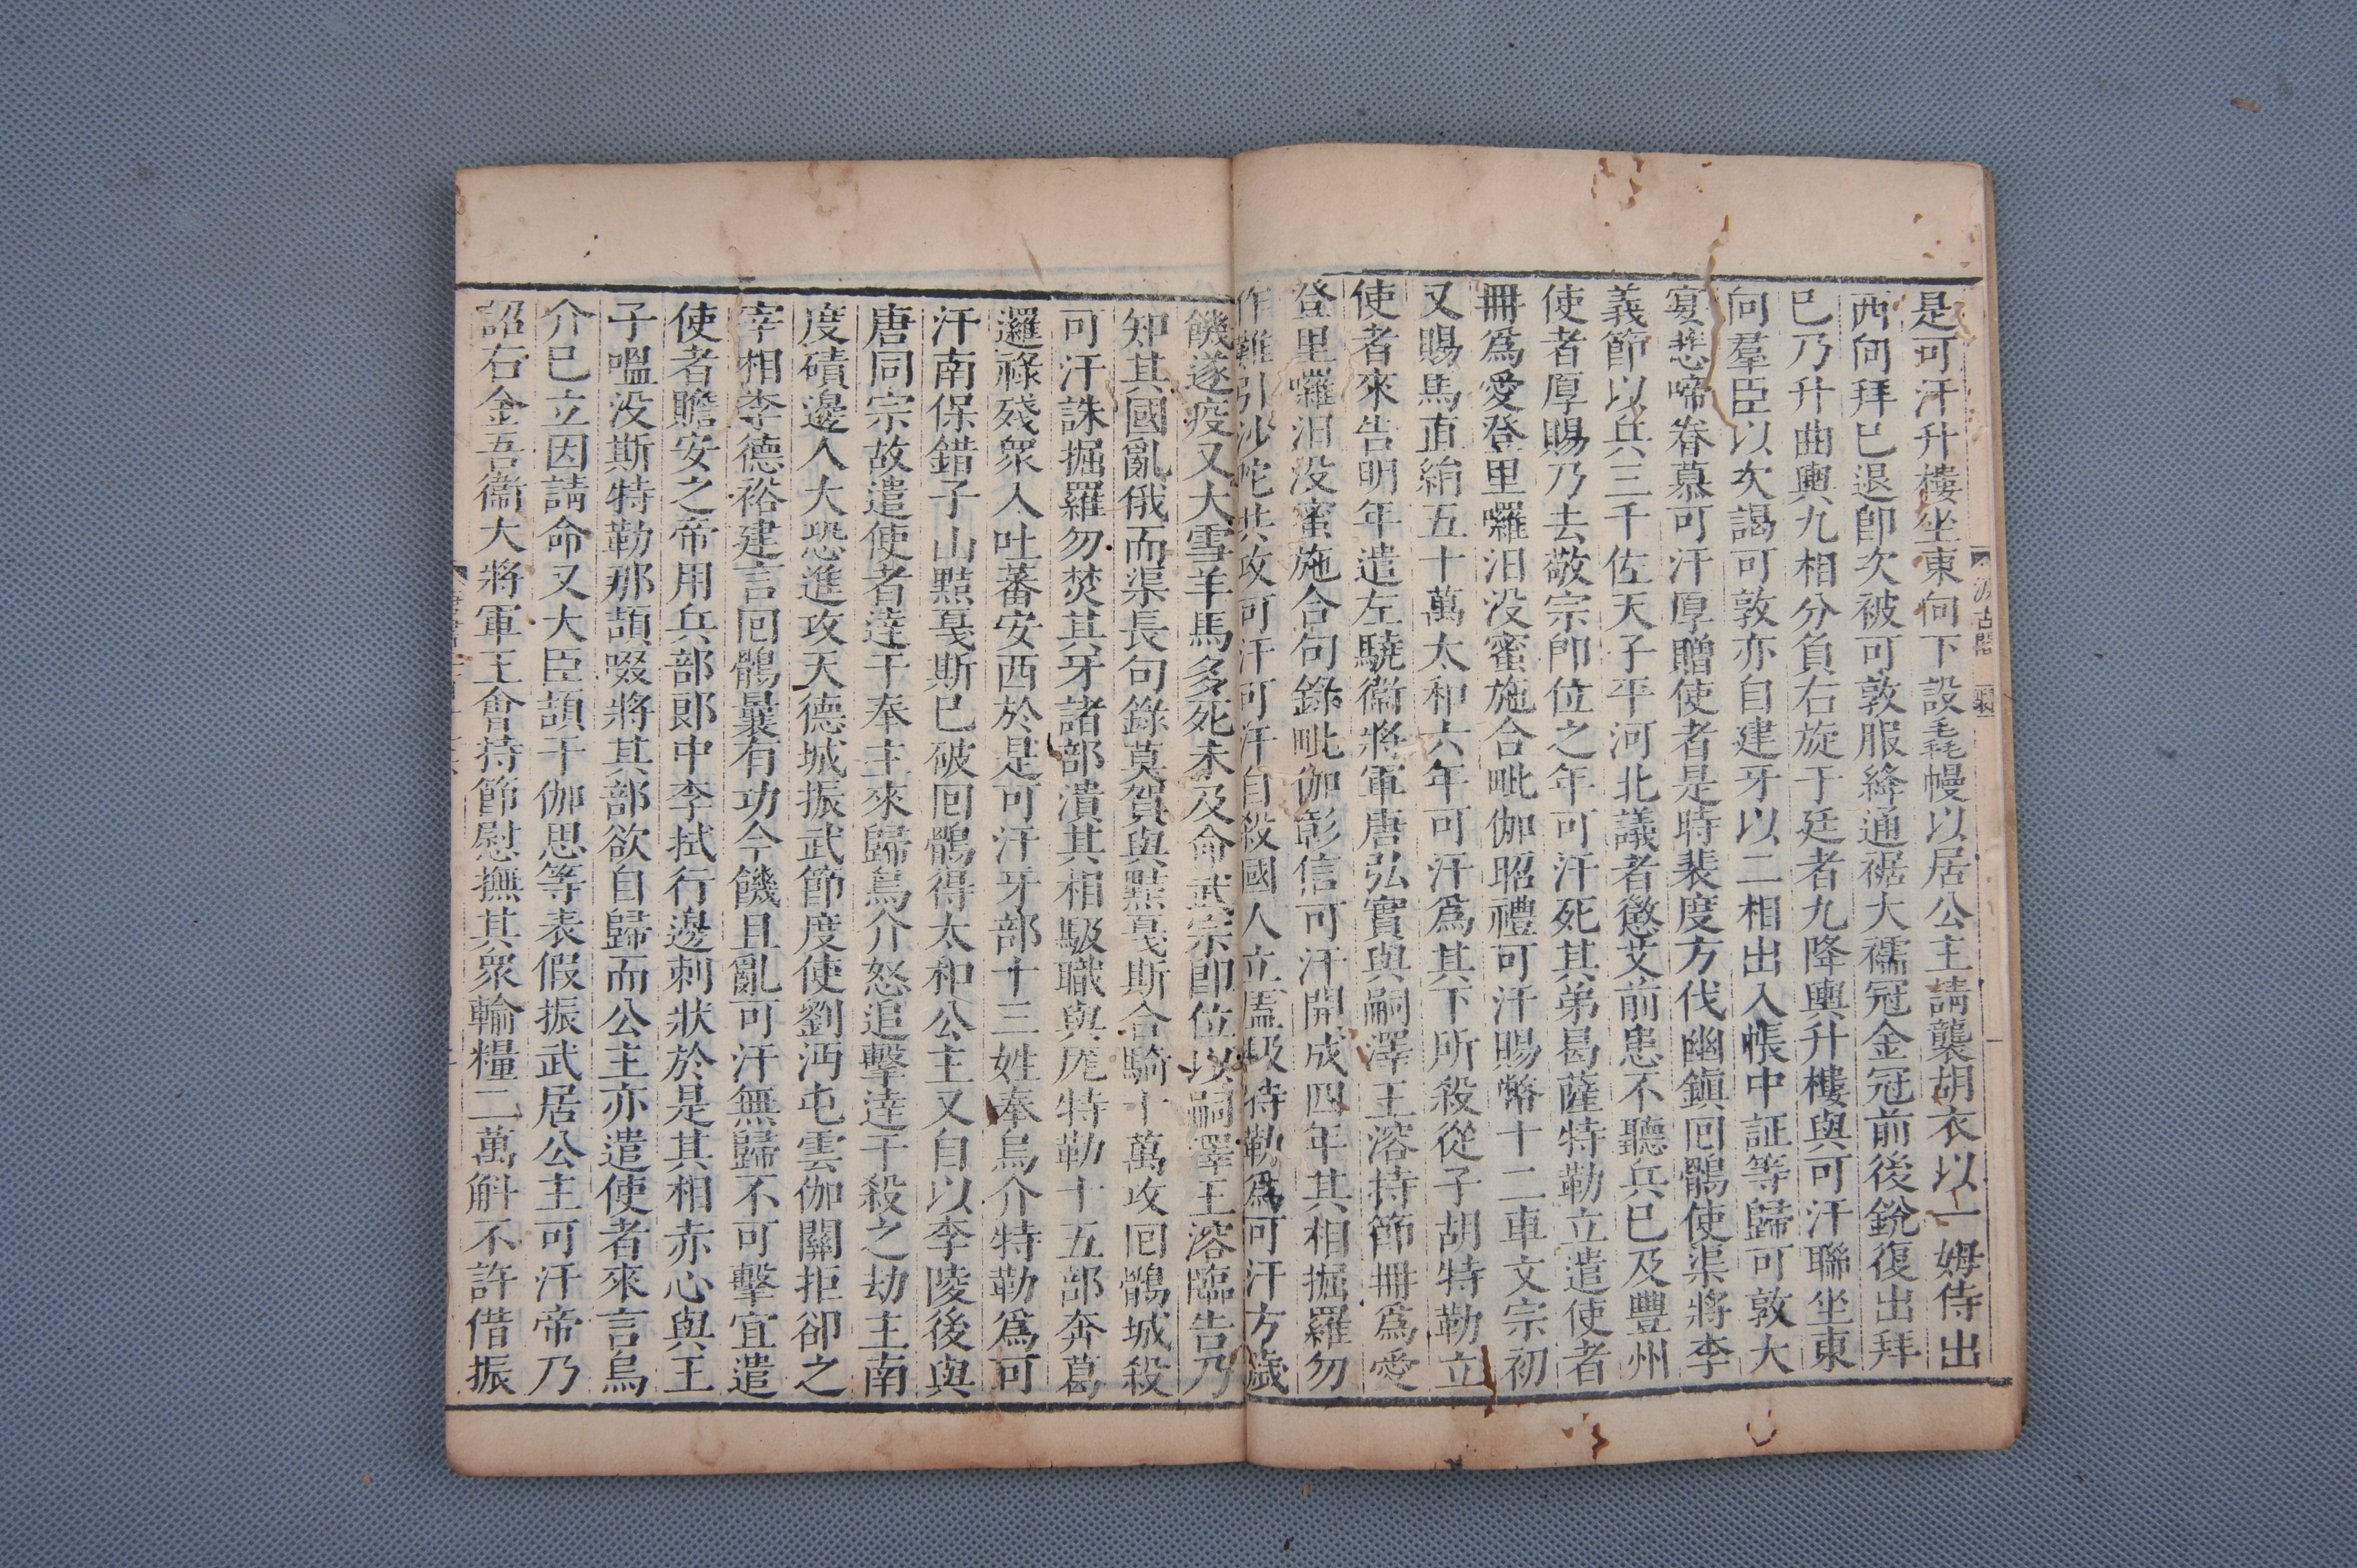 是可汗升樓坐東向下設毳幔以居公主請襲胡衣以一姆侍出
西向拜已退卽次被可敦服絳通裾大襦冠金冠前後銳復出拜
已乃升曲輿九相分負右旋于廷者九降輿升樓與可汗聯坐東
向羣臣以次謁可敦亦自建牙以二相出入帳中証等歸可敦大
宴悲啼眷慕可汗厚贈使者是時裴度方伐幽鎭回鶻使渠將李
義節以兵三千佐天子平河北議者懲艾前患不聽兵已及豐州
使者厚賜乃去敬宗卽位之年可汗死其弟曷薩特勒立遣使者
冊爲愛登里囉汨没蜜施合毗伽昭禮可汗賜幣十二車文宗初
又賜馬直絹五十萬太和六年可汗爲其下所殺從子胡特勒立
使者來告明年遣左驍衞將軍唐弘實與嗣澤王溶持節冊爲愛
登里囉汨没蜜施合句錄毗伽彰信可汗開成四年其相掘羅勿
作難引沙陀共攻可汗可汗自殺國人立㕎馺特勒爲可汗方歲
饑遂疫又大雪羊馬多死未及命武宗卽位以嗣澤王溶臨告乃
知其國亂俄而渠長句錄莫賀與黠戛斯合騎十萬攻回鶻城殺
可汗誅掘羅勿焚其牙諸部潰其相馺職與厖特勒十五部奔葛
邏祿殘衆入吐蕃安西於是可汗牙部十三姓奉烏介特勒爲可
汗南保錯子山黠戛斯已破回鶻得太和公主又自以李陵後與
唐同宗故遣使者達干奉主來歸烏介怒追擊達干殺之劫主南
度磧邊人大恐進攻天德城振武節度使劉沔屯雲伽關拒卻之
宰相李德裕建言回鶻曩有功今饑且亂可汗無歸不可擊宜遣
使者贍安之帝用兵部郎中李拭行邊刺狀於是其相赤心與王
子嗢没斯特勒那頡啜將其部欲自歸而公主亦遣使者來言烏
介已立因請命又大臣頡干伽思等表假振武居公主可汗帝乃
詔右金吾衞大將軍王會持節慰撫其衆輸糧二萬斛不許借振